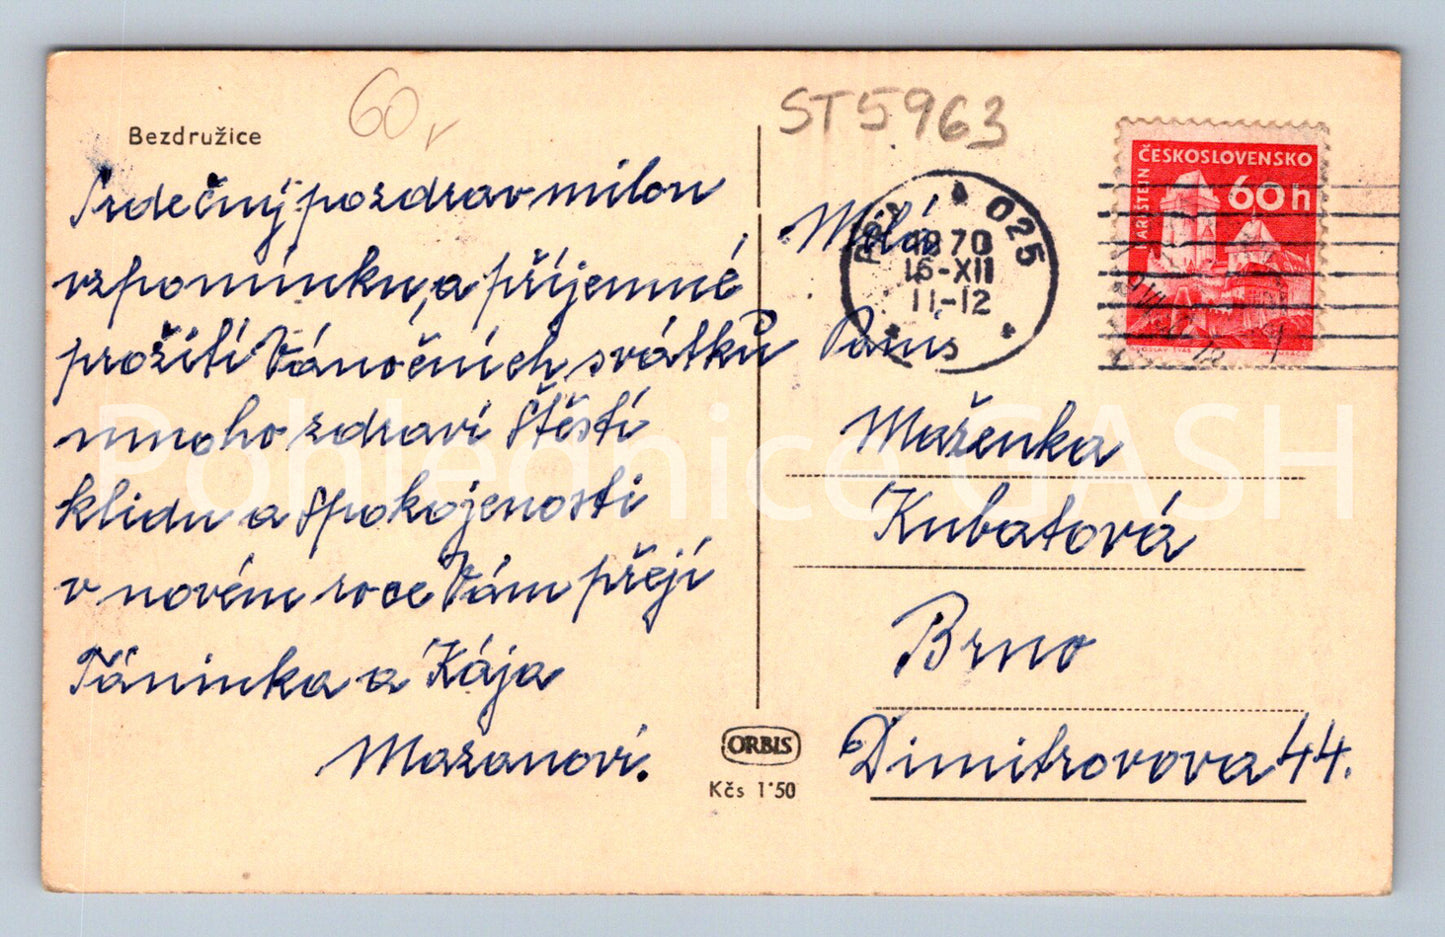 60,
ST5963
Bezdružice
Srdečný pozdrav milou
vzpomínku, a příjemné
prožití Vánočních svátků
mnoho zdraví štěstí
klidu a spokojenosti
v novém roce Vám přejí
Táninka a Kája
Mazanovi.
025
1970
16-XII
11-12
ČESKOSLOVENSKO
60h
KARLŠTEJN
Milá
Paní
Maženka
Kubatová
Brno
Dimitrovova 44.
ORBIS
Kčs 1·50
Pohlednice GASH